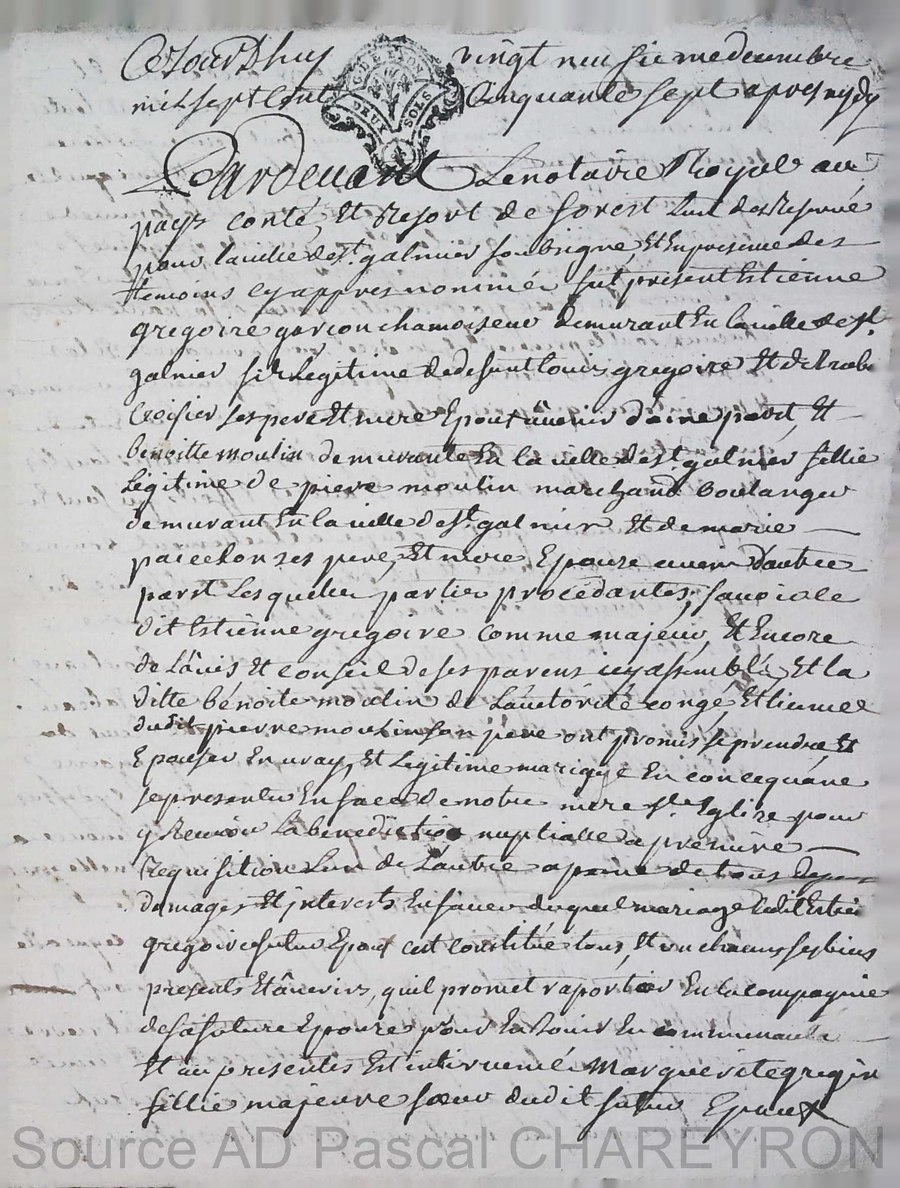 Cejourdhuy vingt neufiemedecembre
mil sept Cent Cinquante sept apres mydy
G. DE LYON
DEUX SOLS
Pardevant Lenotaire Royal au
pays conté, Et Resort de forest Lun des Reservé
pour laville de st. galmier soubsigné, Et En presence des
temoins cy appres nommé fut present Estienne
gregoire garcon chamoiseur demurant En laville de st.
galmier fils Legitime de defunt louis gregoire Et de
Croisier ses pere Et mere Epoux âvenir d'une part, Et
benoitte moulin demurante En la ville de st. galmier fillie
Légitime de pierre moulin marchand boulanger
demurant En la ville de st. galmier Et de marie
paicelon ses pere, Et mere Epouze avenir d'autre
part Lesquelles parties procédantes, sauoir le
dit Estienne gregoire comme majeur, Et Encore
de Lâvis Et conseil de ses parens icy assemblé, Et la
ditte bénoite moulin de Lautorité congé, Et licence
dudit pierre moulin son père ont promis se prendre, Et
Epouser En vray, Et Legitime mariage En concequance
se presenter En face de notre mere ste. Eglize pour
y Recevoir La benediction nuptialle a premiere
Requisition Lun de Lautre a peine de tous depens
domages Et interests En faveur duquel mariage Ledit Estienne
gregoire futur Epoux cest constitué tous, Et un chacuns ses biens
presents Et âvenirs, quil promet raporter En la compagnie
de sa future Epouze pour En Jouir En communauté
Et au presentes Est intervenue Marguerite gregoire
fillie majeure sœur dudit futur Epoux
Source AD Pascal CHAREYRON